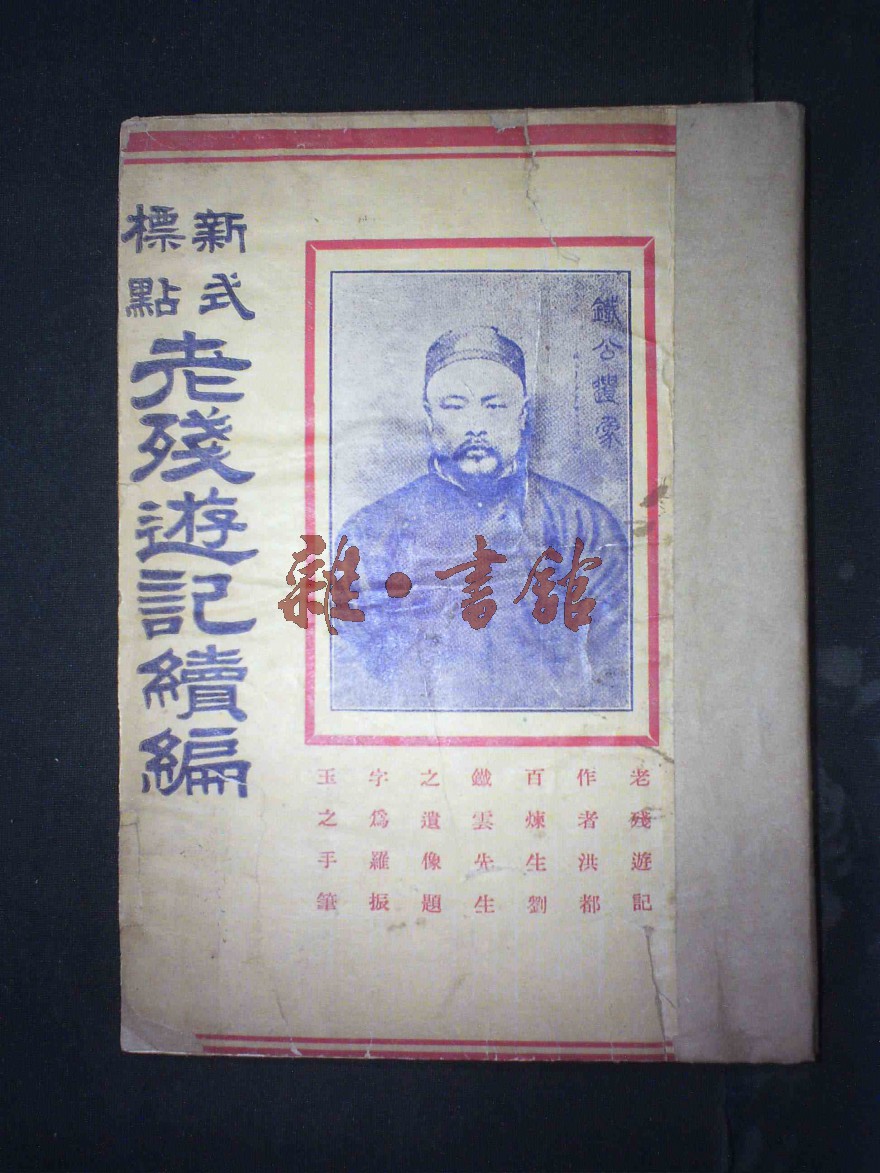 新式
標點
老殘遊記續編
鐵公遺象
雜·書館
老殘遊記
作者洪都
百煉生劉
鐵雲先生
之遺像題
字爲羅振
玉之手筆